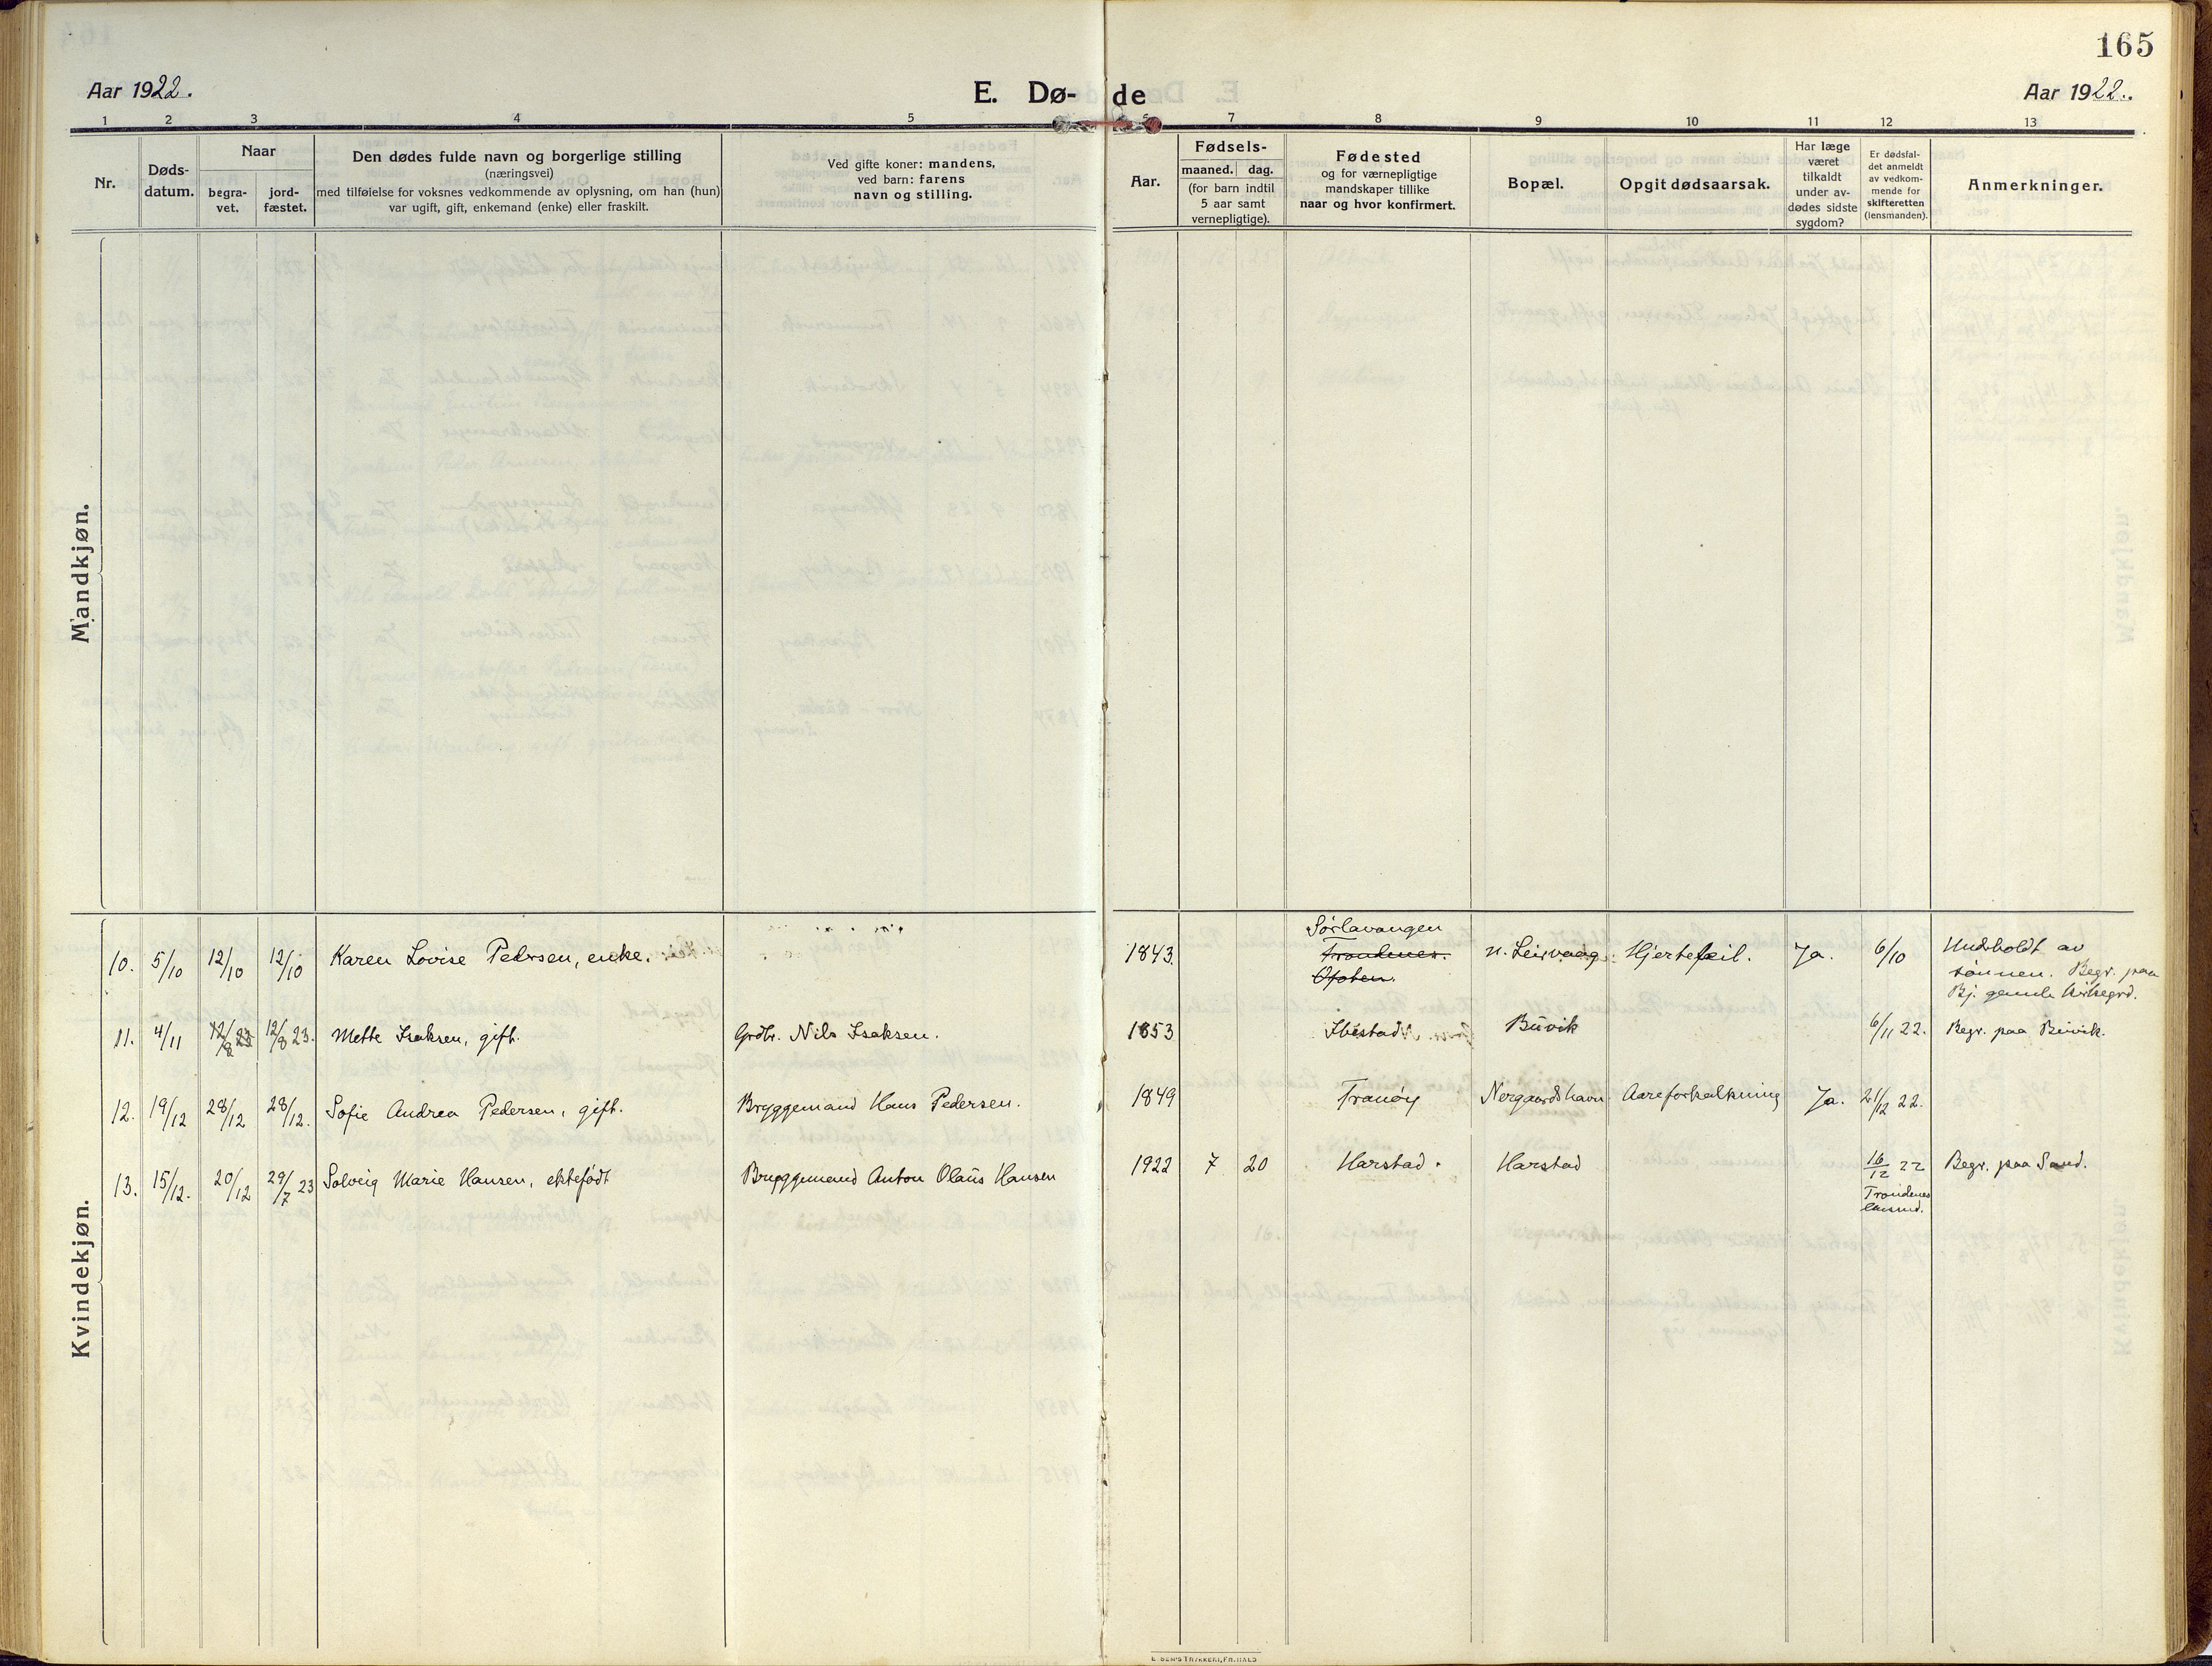 165
Aar 1922.
E. Dø- de
Aar 1922.
1 2 3 4 5 6 7 8 9 10 11 12 13
Nr.
Døds-
datum.
Naar
begra-
vet.
jord-
fæstet.
Den dødes fulde navn og borgerlige stilling
(næringsvei)
med tilføielse for voksnes vedkommende av oplysning, om han (hun)
var ugift, gift, enkemand (enke) eller fraskilt.
Ved gifte koner: mandens,
ved barn: farens
navn og stilling.
Aar.
Fødsels-
maaned. dag.
(for barn indtil
5 aar samt
vernepligtige).
Fødested
og for værnepligtige
mandskaper tillike
naar og hvor konfirmert.
Bopæl.
Opgit dødsaarsak.
Har læge
været
tilkaldt
under av-
dødes sidste
sygdom?
Er dødsfal-
det anmeldt
av vedkom-
mende for
skifteretten
(lensmanden).
Anmerkninger.
Mandkjøn.
Kvindekjøn.
10. 5/10 12/10 12/10 Karen Lovise Pedersen, enke. 1843. Sørlavangen
Trondenes.
Ofoten.
n. Leirvaag Hjertefeil. Ja. 6/10 Underholdt av
sønnen. Begr. paa
Bj. gamle kirkegrd.
11. 4/11 12/8 23 12/8 23. Mette Isaksen, gift. Grdbr. Nils Isaksen. 1853 Ibestad Buvik 6/11 22. Begr. paa Buvik.
12. 19/12 28/12 28/12. Sofie Andrea Pedersen, gift. Bryggemand Hans Pedersen. 1849 Tranøy Nergaardshavn Aareforkalkning Ja. 21/12 22.
13. 15/12. 20/12 29/7 23 Solveig Marie Hansen, ektefødt Bryggemand Anton Olaus Hansen 1922 7 20 Harstad. Harstad 16/12 22
Trondenes
lensmd.
Begr. paa Sand.